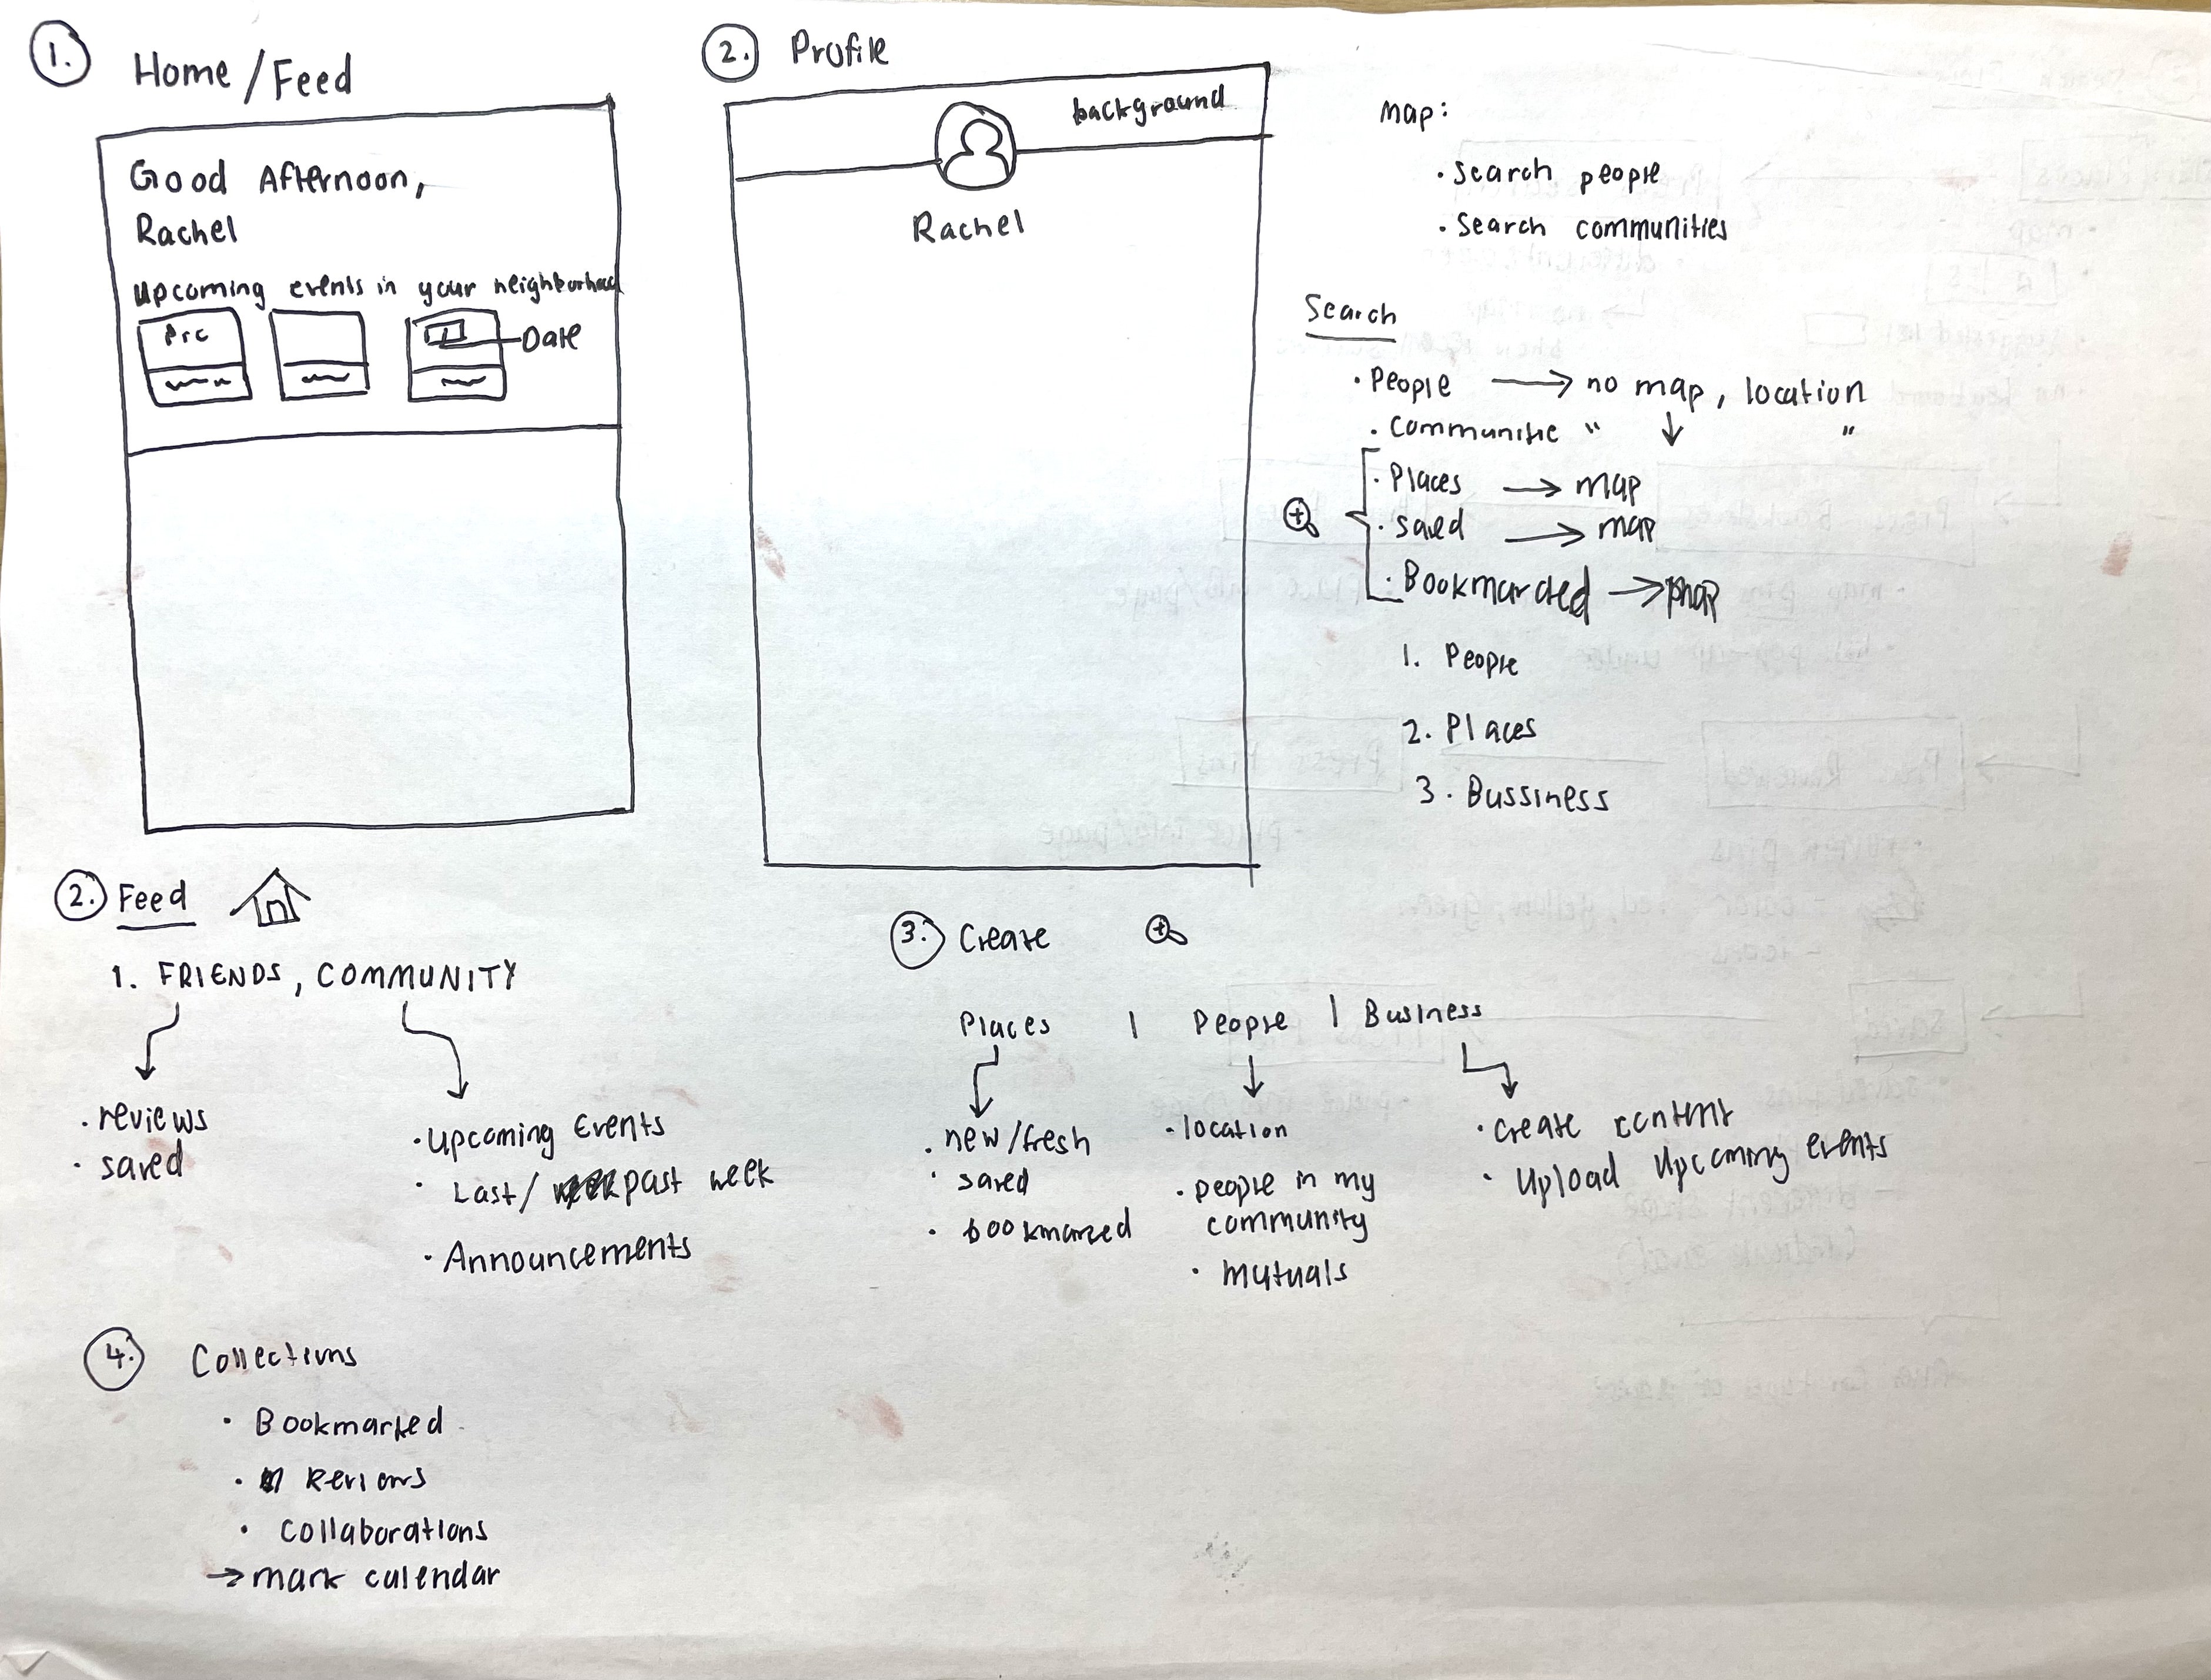 1. Home/Feed
Good Afternoon,
Rachel
upcoming events in your neighborhood
Pic
Date
2. Profile
background
Rachel
map:
· search people
· search communities
Search
· People → no map, location
· Communitie " ↓ "
· Places → map
· saved → map
· Bookmarcted → map
1. People
2. Places
3. Bussiness
2. Feed
1. FRIENDS, COMMUNITY
· reviews
· saved
· upcoming Events
· Last/ past week
· Announcements
3. Create
Places | People | Business
· new/fresh
· saved
· bookmarked
· location
· people in my
community
· mutuals
· create content
· Upload upcoming events
4. Collections
· Bookmarked
· Reviews
· Collaborations
→ mark calendar